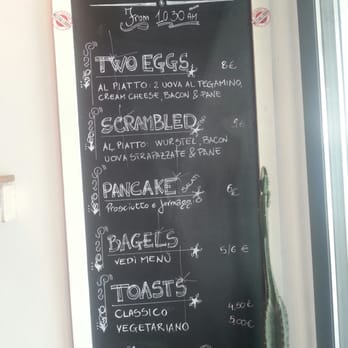 From 10.30 AM
TWO EGGS 8€
AL PIATTO: 2 UOVA AL TEGAMINO,
CREAM CHEESE, BACON & PANE
SCRAMBLED
AL PIATTO: WURSTEL, BACON
UOVA STRAPAZZATE & PANE
PANCAKE 6€
Prosciutto e formaggio
BAGELS 5/6 €
VEDI MENU
TOASTS
CLASSICO 4,50€
VEGETARIANO 5,00€